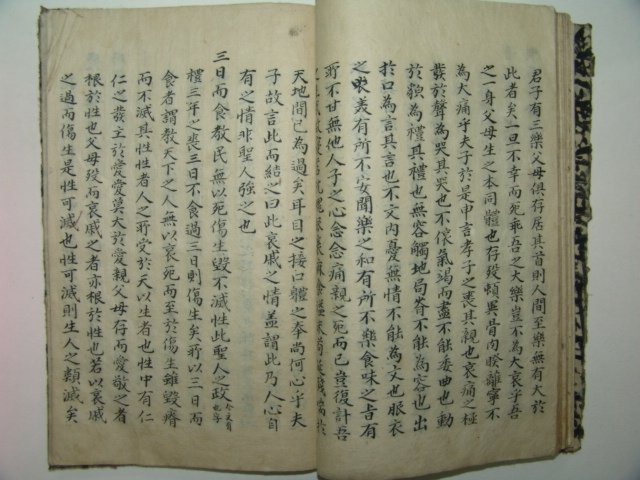 君子有三樂父母俱存居其首則人間至樂無有大於
此者矣一旦不幸而死乖吾之大樂豈不為大哀乎吾
之一身父母生之本同體也存歿頓異骨肉睽離寧不
為大痛乎夫子於是申言孝子之喪其親也哀痛之極
發於聲為哭其哭也不偯氣竭而盡不能委曲也動
於貌為禮其禮也無容觸地局脊不能為容也出
於口為言其言也不文內憂無情不能為文也服衣
之美有所不安聞樂之和有所不樂食味之旨有
所不甘無他人子之心念念痛親之死而已豈復計吾
天地間已為過矣耳目之接口體之奉尚何心乎夫
子故言此而結之曰此哀戚之情盖謂此乃人心自
有之情非聖人強之也
三日而食教民無以死傷生毀不滅性此聖人之政今文有也字
禮三年之喪三日不食過三日則傷生矣所以三日而
食者謂教天下之人無以哀死而至於傷生雖毀瘠
而不滅其性性者人之所受於天以生者也性中有仁
仁之發主於愛愛莫大於愛親父母存而愛敬之者
根於性也父母歿而哀戚之者亦根於性也若以哀戚
之過而傷生是性可滅也性可滅則生人之類滅矣